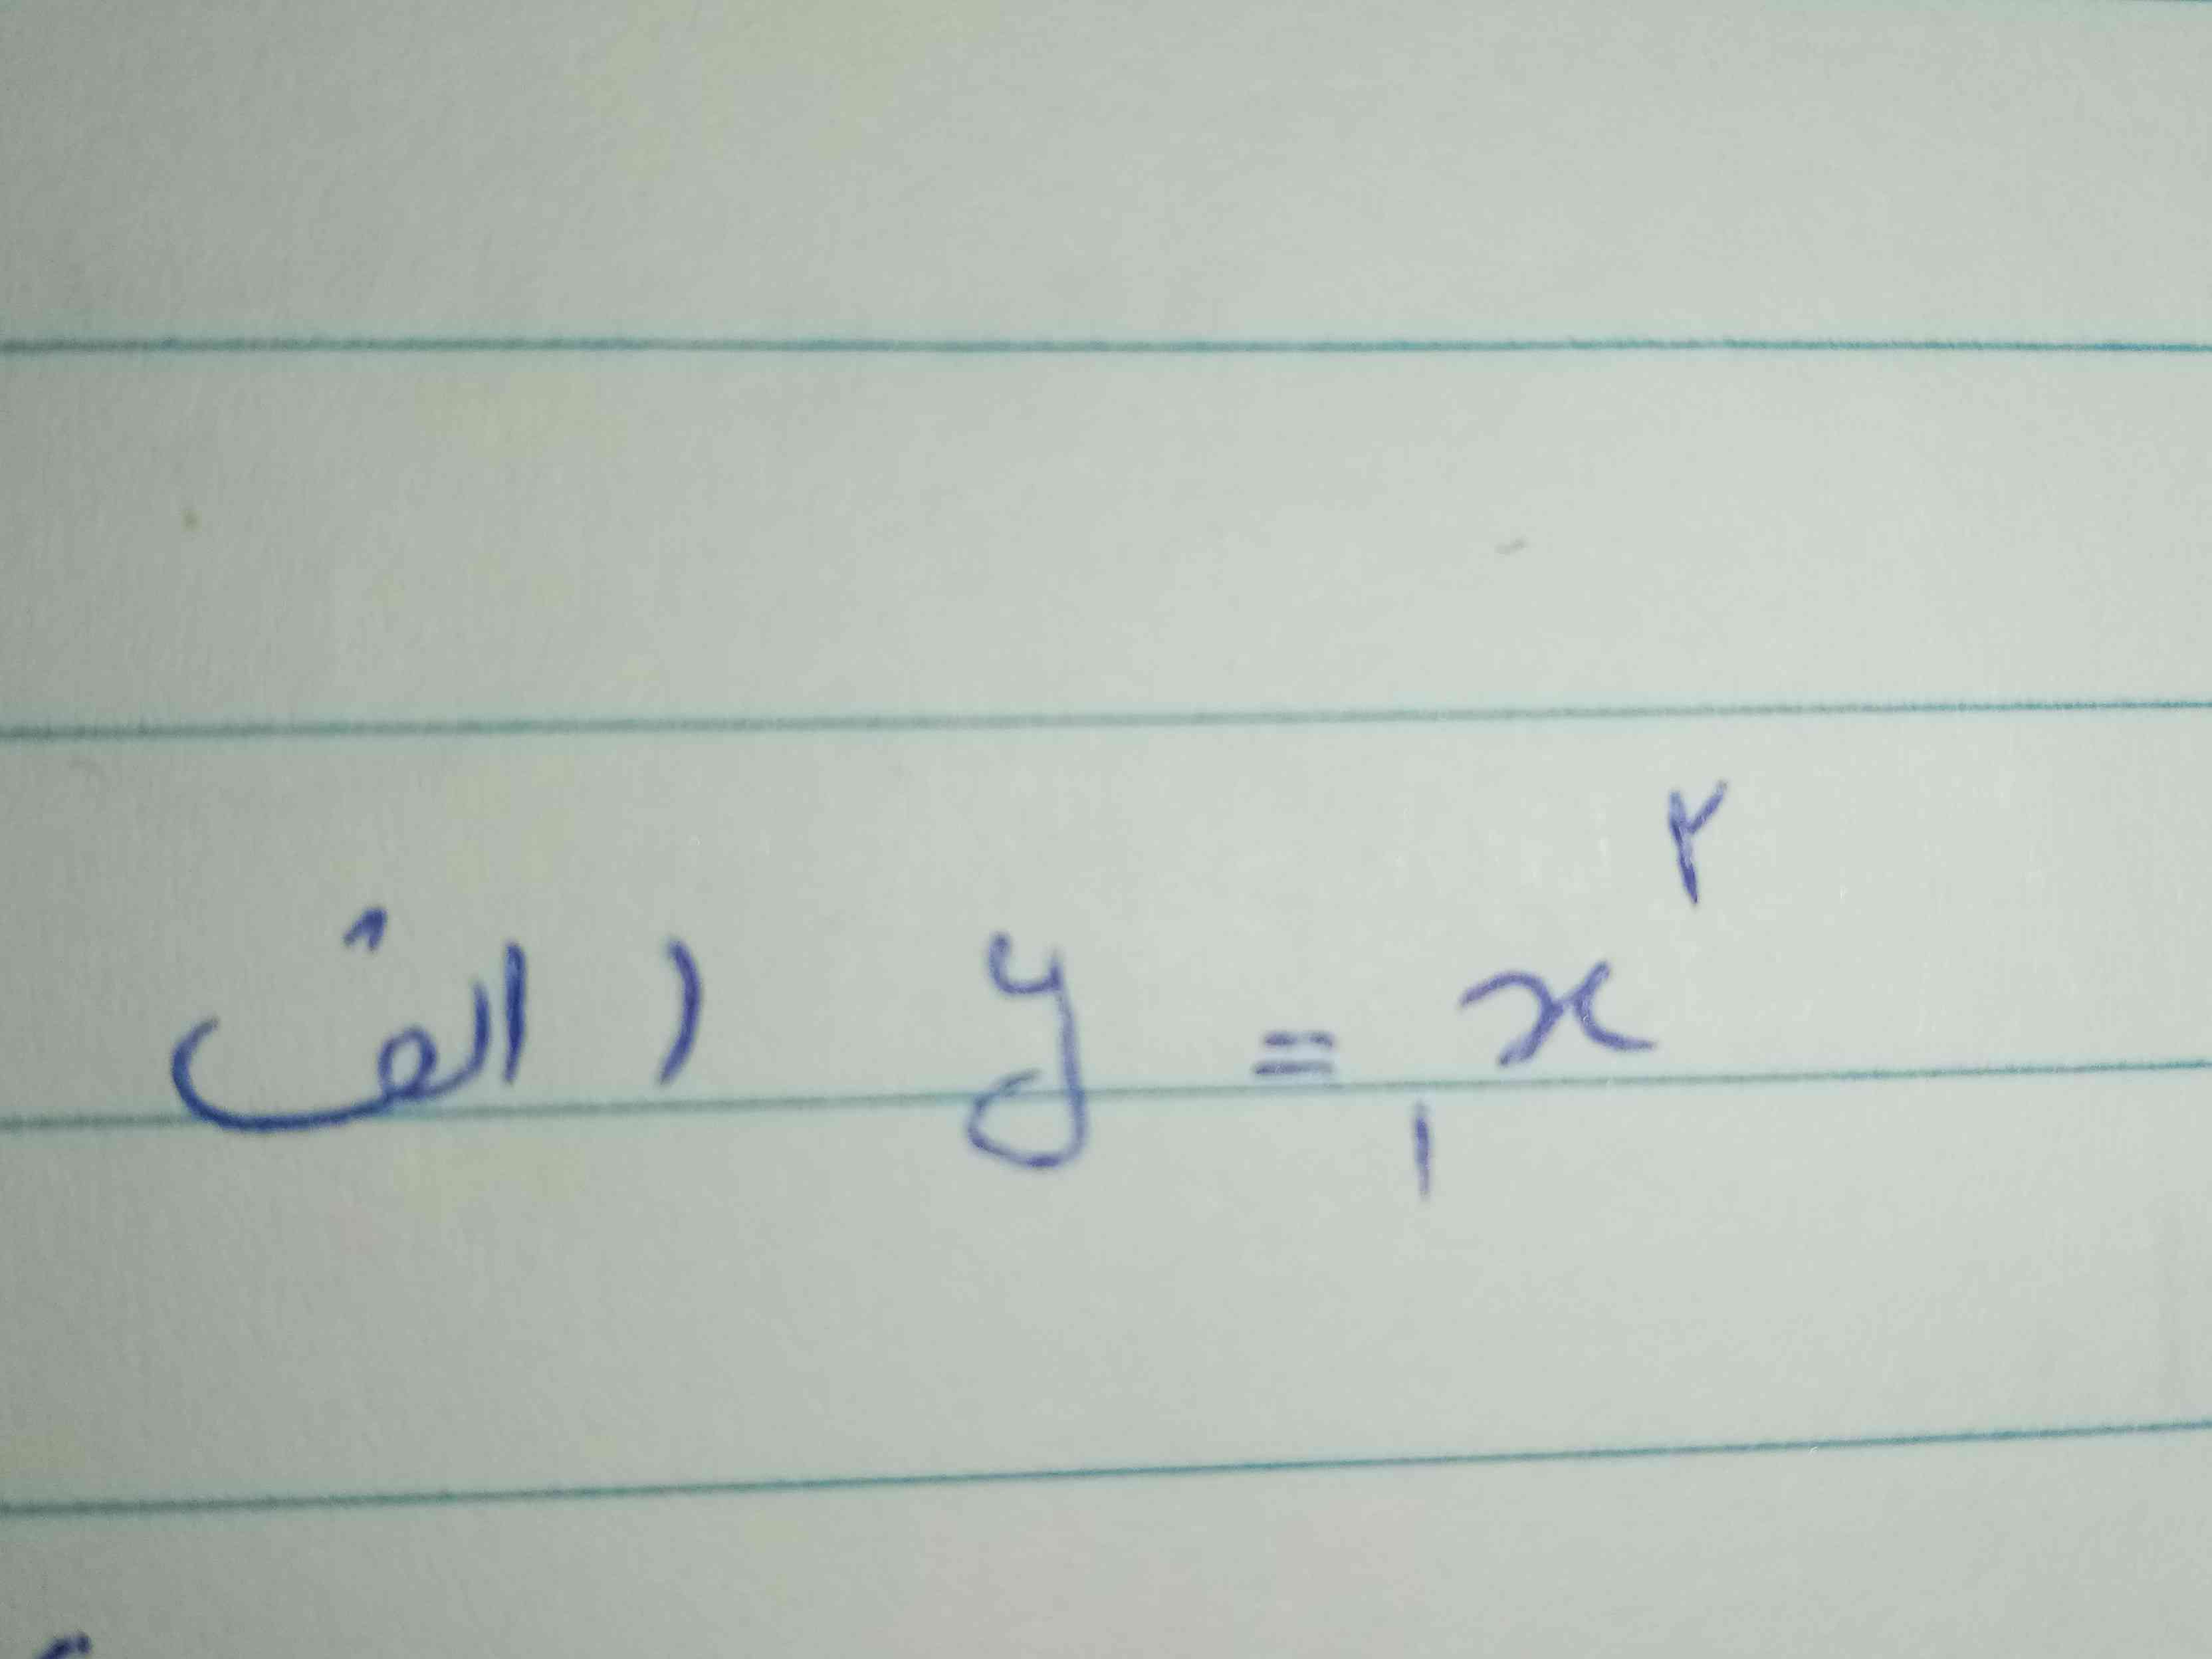 الف) y = x²
۱